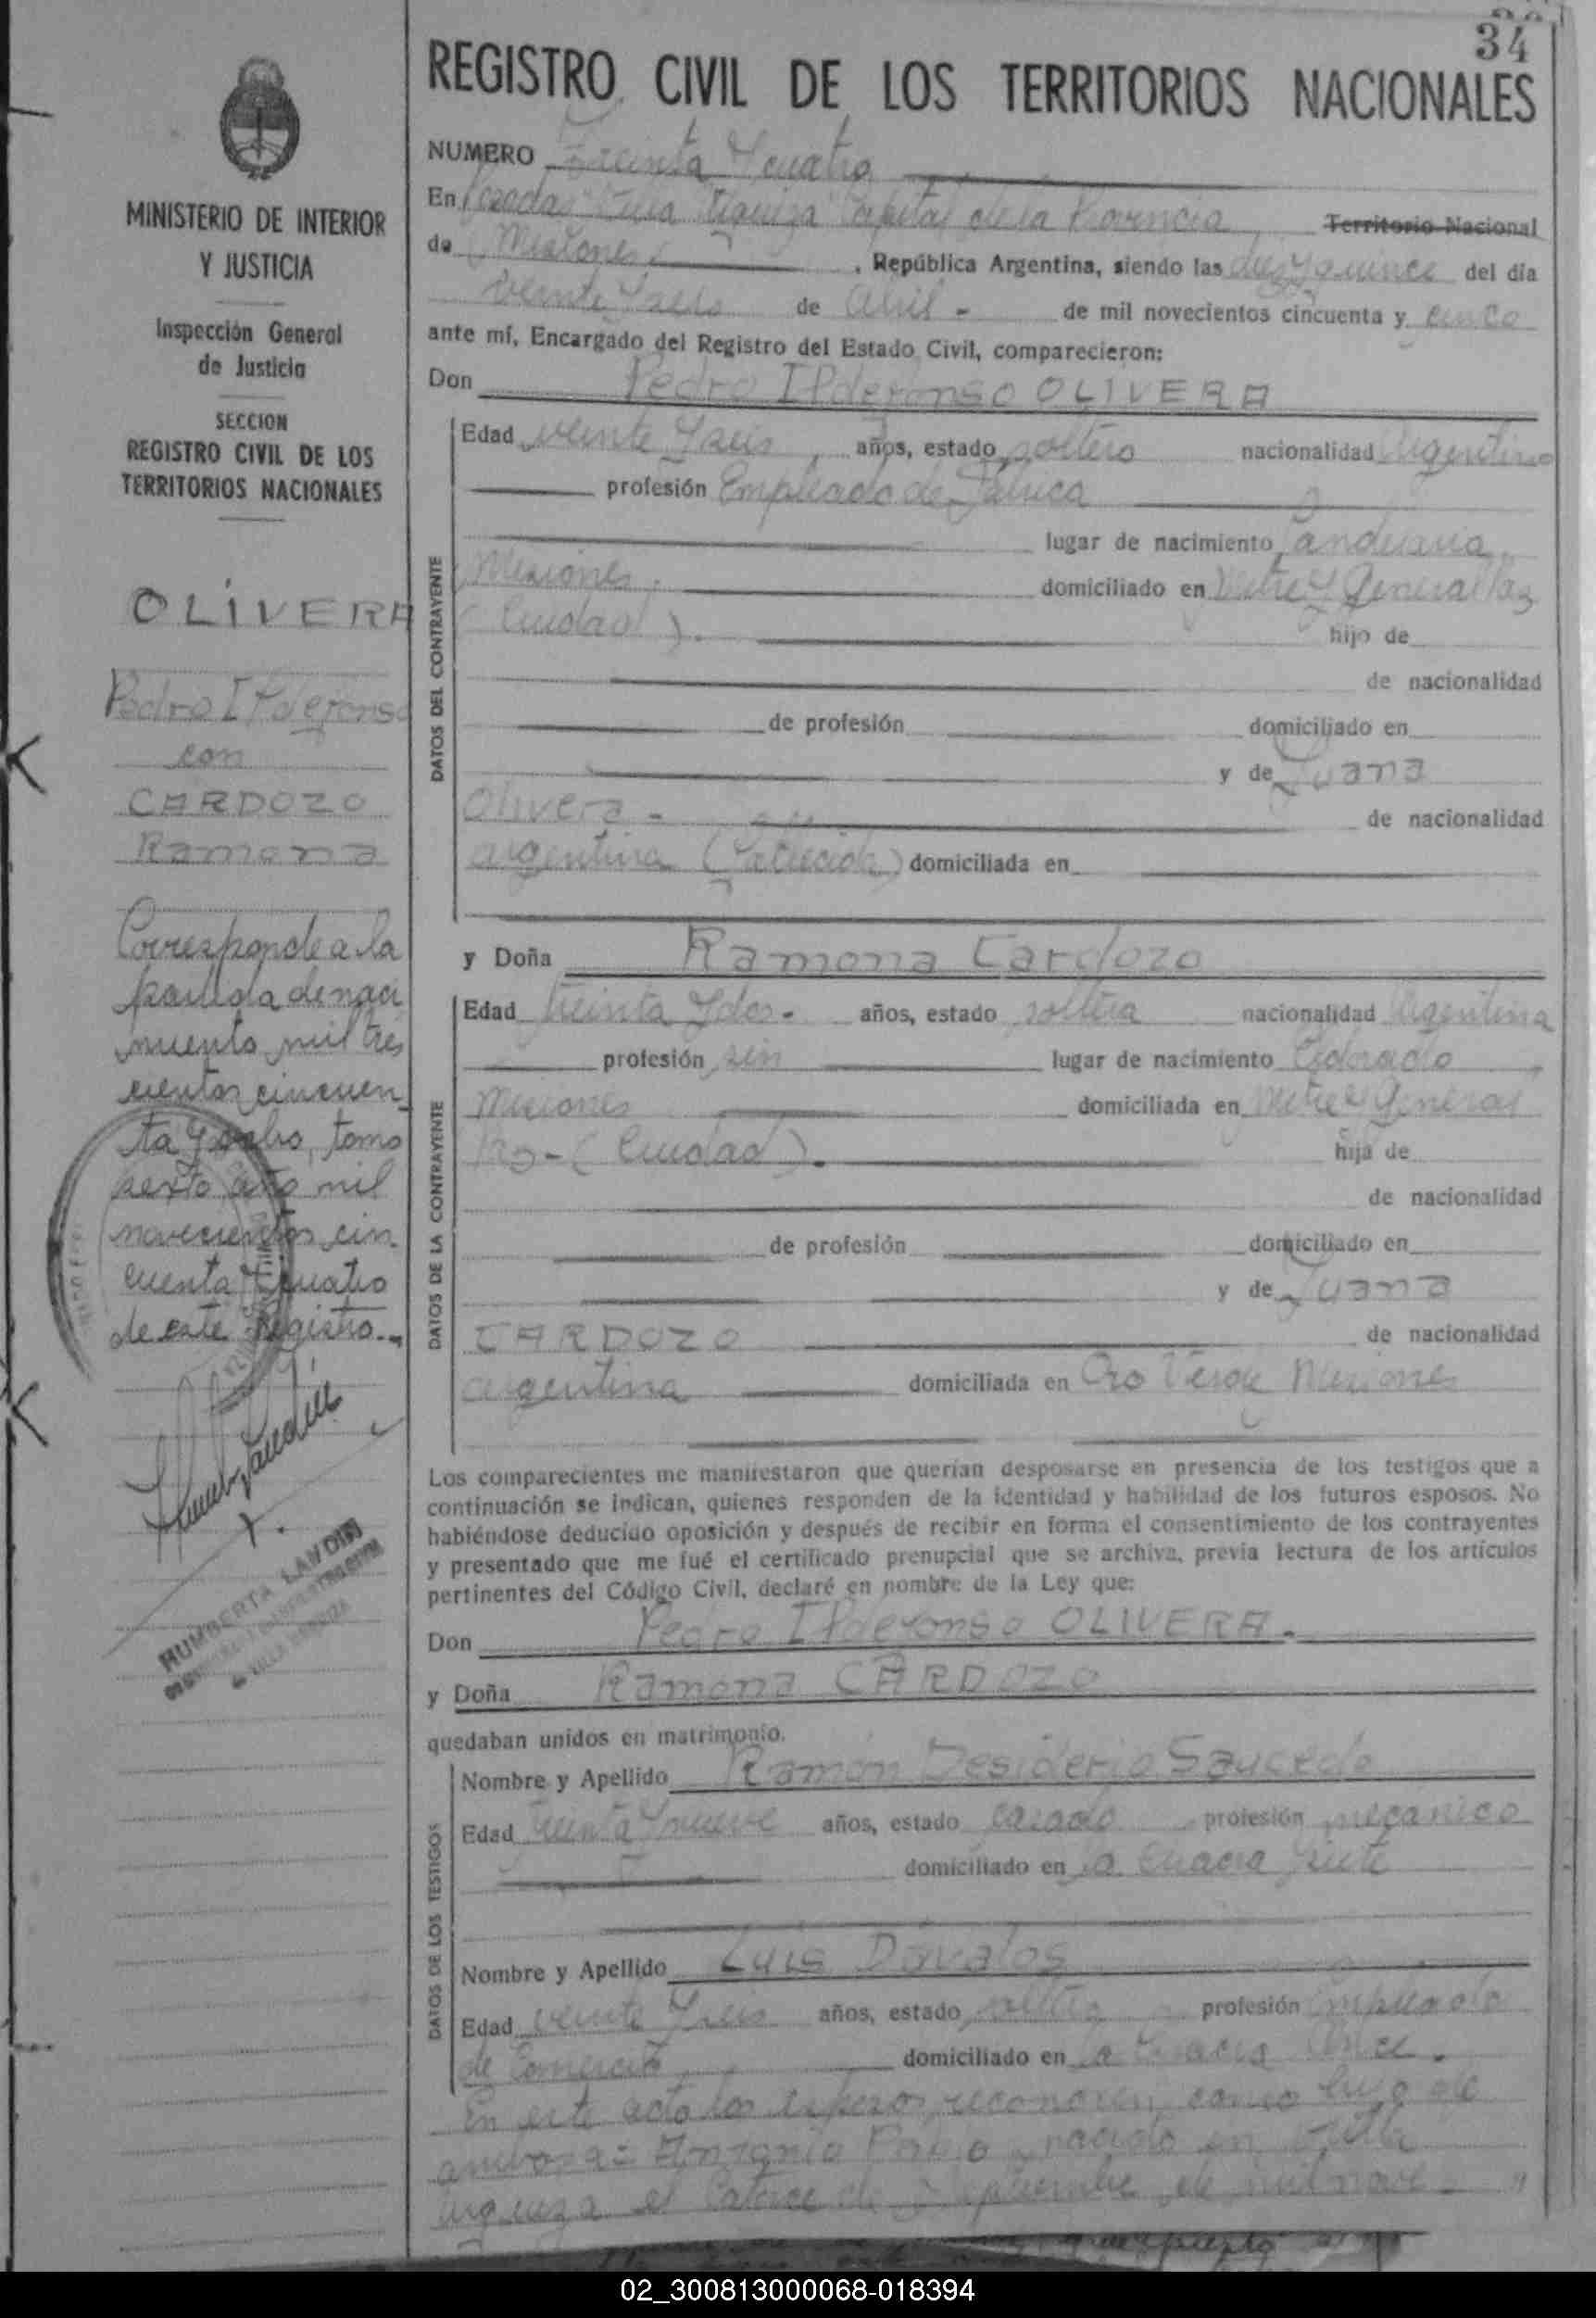 34
REGISTRO CIVIL DE LOS TERRITORIOS NACIONALES
MINISTERIO DE INTERIOR
Y JUSTICIA
Inspección General
de Justicia
SECCION
REGISTRO CIVIL DE LOS
TERRITORIOS NACIONALES
OLIVERA
Pedro Ildefonso
con
CARDOZO
Ramona
Corresponde a la
partida de naci
miento mil tres
cientos cincuen
ta y ocho, tomo
sexto año mil
novecientos cin
cuenta y cuatro
de este Registro.-
HUMBERTA LANDIN
NUMERO Treinta y cuatro
En Posadas "Villa Urquiza" Capital de la Provincia Territorio Nacional
de Misiones, República Argentina, siendo las diez y quince del día
veinte y seis de Abril - de mil novecientos cincuenta y cinco
ante mí, Encargado del Registro del Estado Civil, comparecieron:
Don Pedro Ildefonso OLIVERA
DATOS DEL CONTRAYENTE
Edad veinte y seis años, estado soltero nacionalidad Argentino
profesión Empleado de Fabrica
lugar de nacimiento Candelaria
Misiones. domiciliado en Mitre y General Paz
(Ciudad). hijo de
de nacionalidad
de profesión domiciliado en
y de Juana
Olivera - de nacionalidad
argentina (fallecida) domiciliada en
y Doña Ramona Cardozo
DATOS DE LA CONTRAYENTE
Edad treinta y dos - años, estado soltera nacionalidad Argentina
profesión sin lugar de nacimiento Eldorado
Misiones domiciliada en Mitre y General
Paz - (Ciudad). hija de
de nacionalidad
de profesión domiciliado en
y de Juana
CARDOZO de nacionalidad
argentina domiciliada en Oro Verde Misiones
Los comparecientes me manifestaron que querían desposarse en presencia de los testigos que a
continuación se indican, quienes responden de la identidad y habilidad de los futuros esposos. No
habiéndose deducido oposición y después de recibir en forma el consentimiento de los contrayentes
y presentado que me fué el certificado prenupcial que se archiva, previa lectura de los artículos
pertinentes del Código Civil, declaré en nombre de la Ley que:
Don Pedro Ildefonso OLIVERA.
y Doña Ramona CARDOZO
quedaban unidos en matrimonio.
DATOS DE LOS TESTIGOS
Nombre y Apellido Ramón Desiderio Saucedo
Edad treinta y nueve años, estado casado profesión mecanico
domiciliado en la Chacra siete
Nombre y Apellido Luis Dávalos
Edad veinte y seis años, estado soltero profesión Empleado
de Comercio domiciliado en la Chacra once.
En este acto los esposos reconocen como hijo de
ambos a: Antonio Pablo nacido en Villa
Urquiza el catorce de Septiembre de mil nove-
02_300813000068-018394